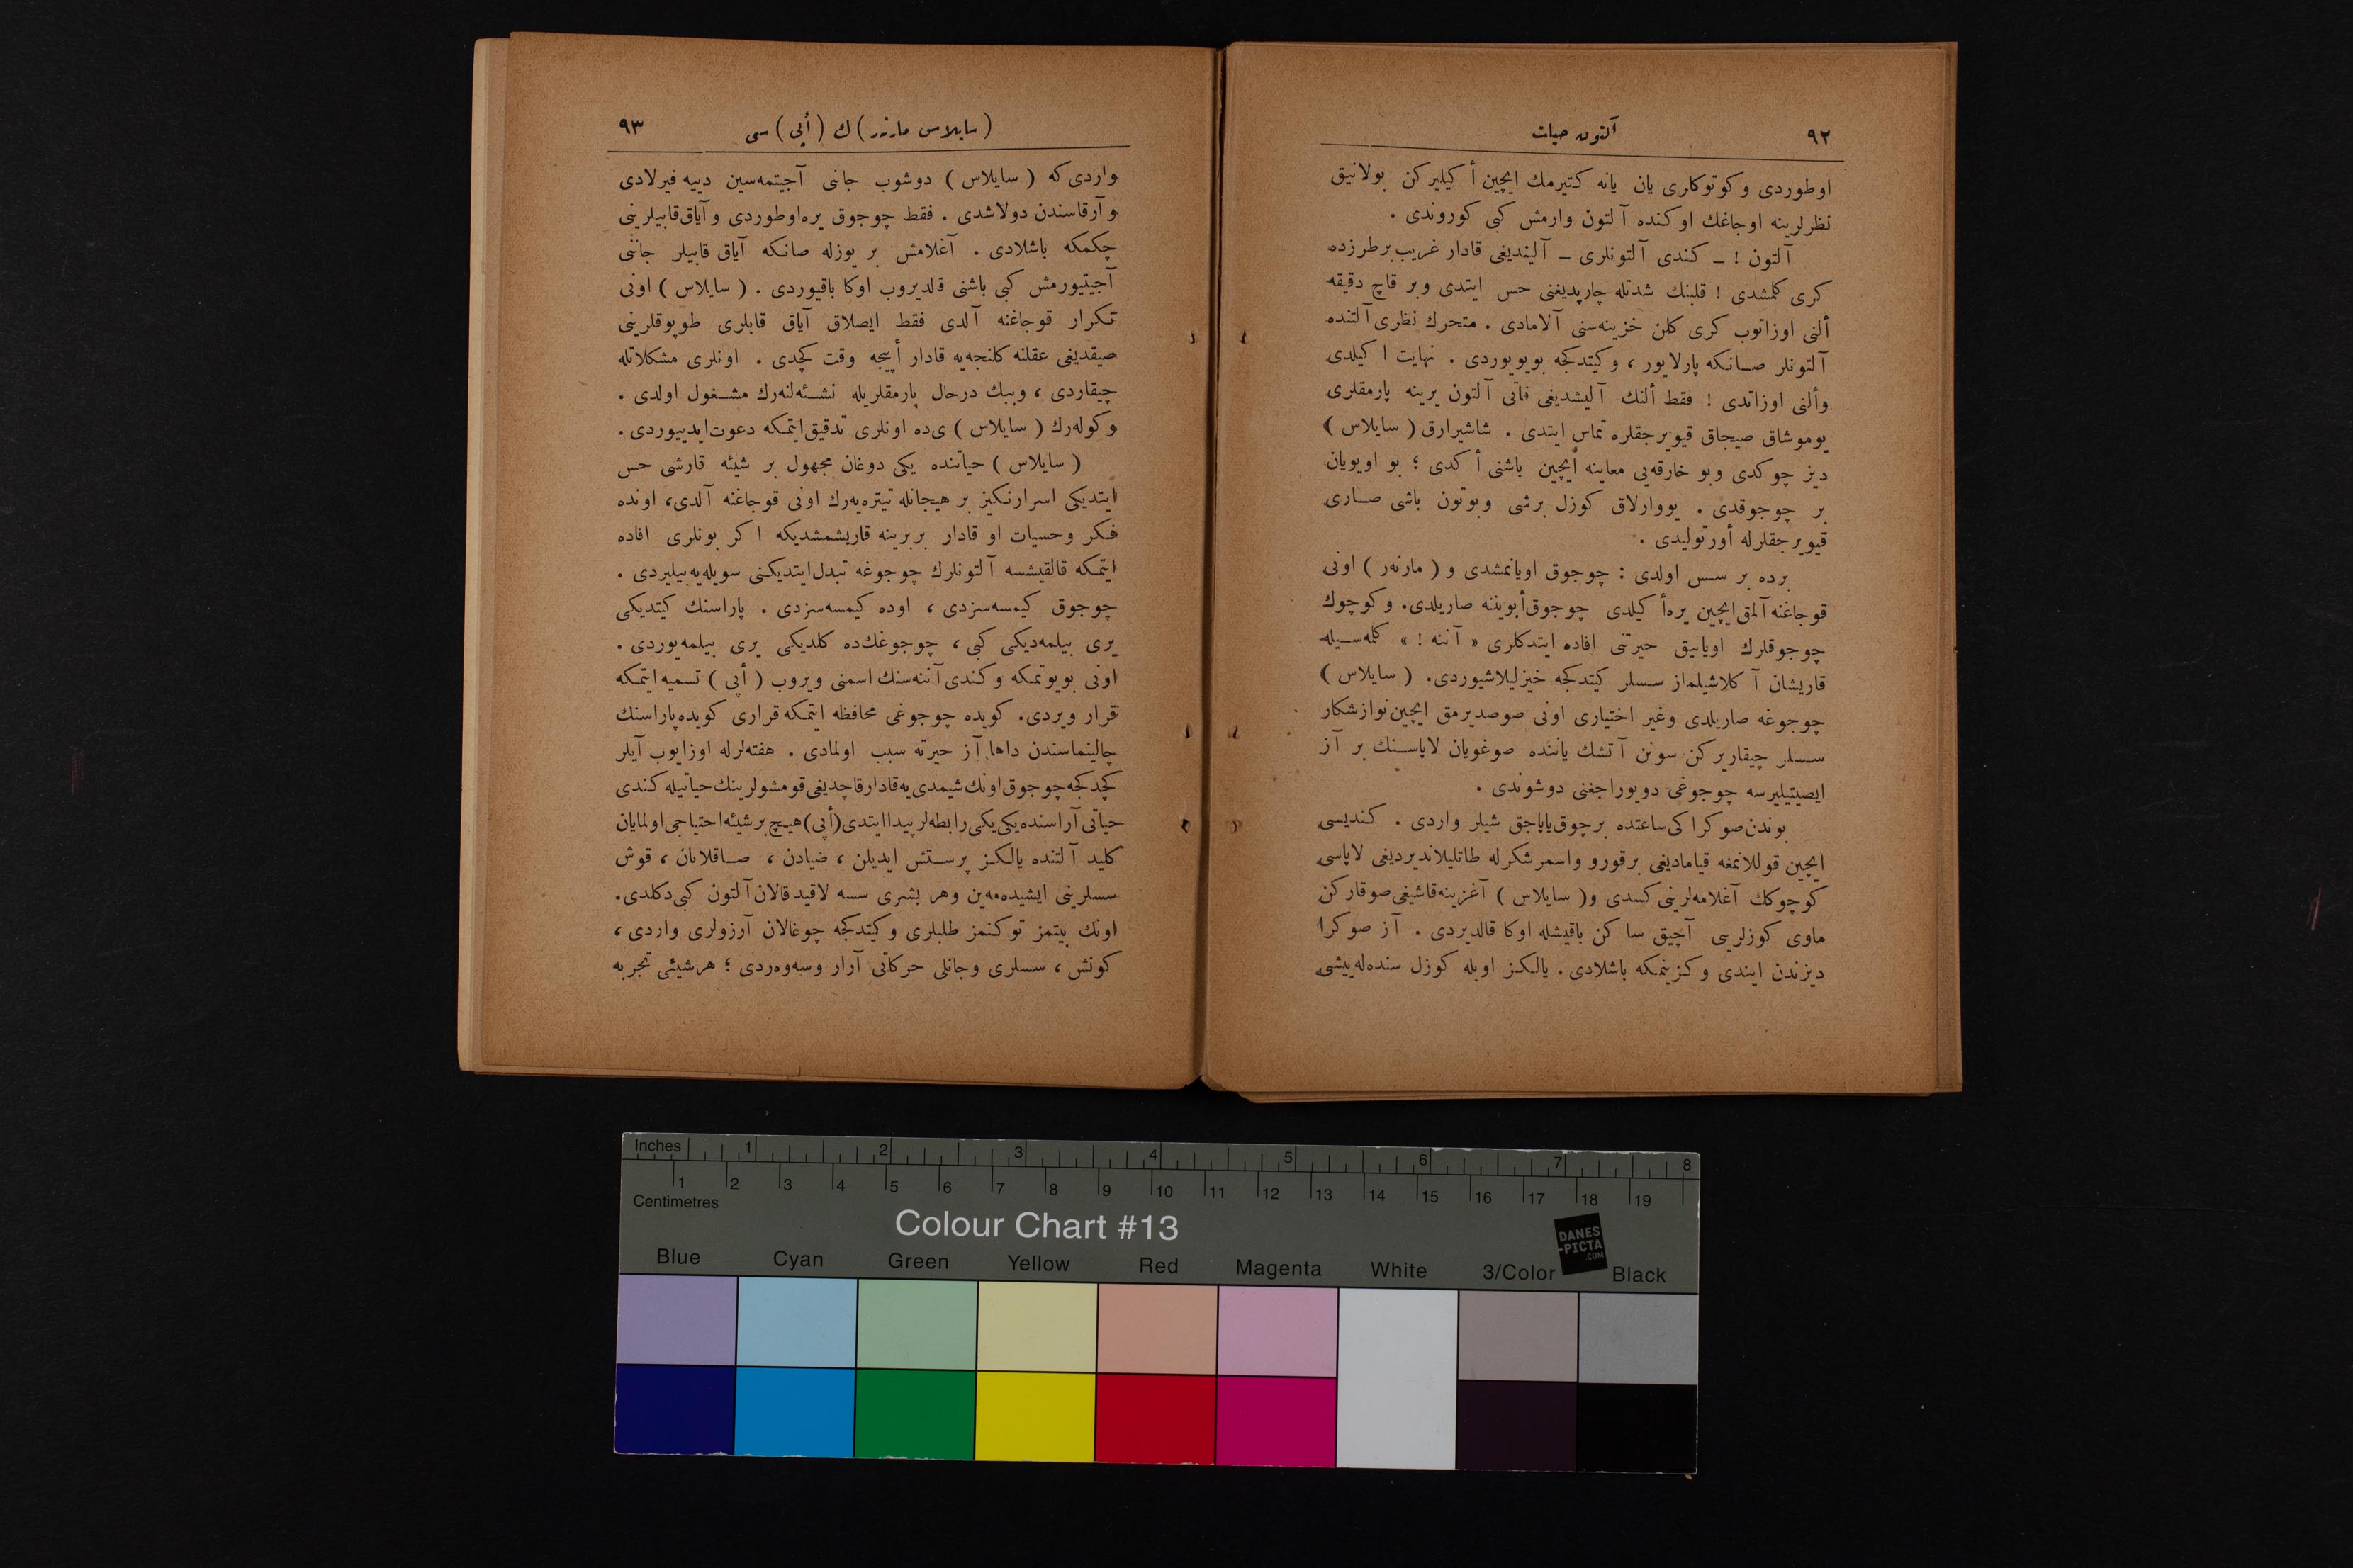 ٩٢
آلتون حيات
اوطوردى وكوتوكلرى يان يانه كتيرمك ايچين أكيليركن بولانيق
نظرلرينه اوجاغك اوكنده آلتون وارمش كبى كوروندى .
آلتون ! ــ كندى آلتونلرى ــ آلينديغى قادار غريب برطرزده
كرى كلمشدى ! قلبنك شدتله چارپديغنى حس ايتدى وبر قاچ دقيقه
ألنى اوزاتوب كرى كلن خزينه‌سنى آلامادى . متحرك نظرى آلتنده
آلتونلر صانكه پارلايور ، وكيتدكجه بويويوردى . نهايت اكيلدى
وألنى اوزاتدى ! فقط ألنك آليشديغى قاتى آلتون يرينه پارمقلرى
يوموشاق صيجاق قيويرجقلره تماس ايتدى . شاشيرارق ( سايلاس )
ديز چوكدى وبو خارقه‌يى معاينه ايچين باشنى أكدى ؛ بو اويويان
بر چوجوقدى . يووارلاق كوزل برشى وبوتون باشى صارى
قيويرجقلرله أورتوليدى .
برده بر سس اولدى : چوجوق اويانمشدى و ( مارنه‌ر ) اونى
قوجاغنه آلمق ايچين يره أكيلدى چوجوق أبويننه صاريلدى. وكوچوك
چوجوقلرك اويانيق حيرتنى افاده ايتدكلرى « آننه ! » كلمه‌سيله
قاريشان آكلاشيلماز سسلر كيتدكجه خيزليلاشيوردى. ( سايلاس )
چوجوغه صاريلدى وغير اختيارى اونى صوصديرمق ايچين نوازشكار
سسلر چيقاريركن سونن آتشك ياننده صوغويان لاپاسنك بر آز
ايصيتيليرسه چوجوغى دويوراجغنى دوشوندى .
بوندن صوكرا كى ساعتده برچوق ياپاجق شيلر واردى . كنديسى
ايچين قوللانمغه قيامديغى برقورو واسمر شكرله طاتليلانديرديغى لاپاسى
كوچوكك آغلامه‌لرينى كسدى و( سايلاس ) آغزينه قاشيغى صوقاركن
ماوى كوزلرينى آچيق ساكن باقيشله اوكا قالديردى . آز صوكرا
ديزندن ايندى وكزينمكه باشلادى. يالكز اويله كوزل سنده‌له‌ييشى
( سايلاس مارنه‌ر ) ك ( أپى ) سى
٩٣
واردى كه ( سايلاس ) دوشوب جانى آجيتمه‌سين دييه فيرلادى
وآرقاسندن دولاشدى . فقط چوجوق يره اوطوردى وآياق قابيلرينى
چكمكه باشلادى . آغلامش بر يوزله صانكه آياق قابيلر جاننى
آجيتيورمش كبى باشنى قالديروب اوكا باقيوردى . ( سايلاس ) اونى
تكرار قوجاغنه آلدى فقط ايصلاق آياق قابلرى طوپوقلرينى
صيقديغى عقلنه كلنجه‌يه قادار أپيجه وقت كچدى . اونلرى مشكلاتله
چيقاردى ، وببك درحال پارمقلريله نشئه‌لنه‌رك مشغول اولدى .
وكوله‌رك ( سايلاس ) ى‌ده اونلرى تدقيق ايتمكه دعوت ايدييوردى .
( سايلاس ) حياتنده يكى دوغان مجهول بر شيئه قارشى حس
ايتديكى اسرارنكيز بر هيجانله تيتره‌يه‌رك اونى قوجاغنه آلدى، اونده
فكر وحسيات او قادار بربرينه قاريشمشديكه اكر بونلرى افاده
ايتمكه قالقيشسه آلتونلرك چوجوغه تبدل ايتديكنى سويله‌يه‌بيليردى .
چوجوق كيمسه‌سزدى ، اوده كيمسه‌سزدى . پاراسنك كيتديكى
يرى بيلمه‌ديكى كبى ، چوجوغك‌ده كلديكى يرى بيلمه‌يوردى .
اونى بويوتمكه وكندى آننه‌سنك اسمنى ويروب ( أپى ) تسميه ايتمكه
قرار ويردى. كويده چوجوغى محافظه ايتمكه قرارى كويده پاراسنك
چالينماسندن داها آز حيرته سبب اولمادى . هفته‌لرله اوزايوب آيلر
كچدكجه چوجوق اونك شيمدى‌يه قادار قاچديغى قومشولرينك حياتيله كندى
حياتى آراسنده يكى يكى رابطه‌لر پيدا ايتدى (أپى) هيچ برشيئه احتياجى اولمايان
كليد آلتنده يالكز پرستش ايديلن ، ضيادن ، صاقلانان ، قوش
سسلرينى ايشيده‌مه‌ين وهر بشرى سسه لاقيد قالان آلتون كبى دكلدى.
اونك بيتمز توكنمز طلبلرى وكيتدكجه چوغالان آرزولرى واردى ،
كونش ، سسلرى وجانلى حركاتى آرار وسه‌وه‌ردى ؛ هرشيئى تجربه